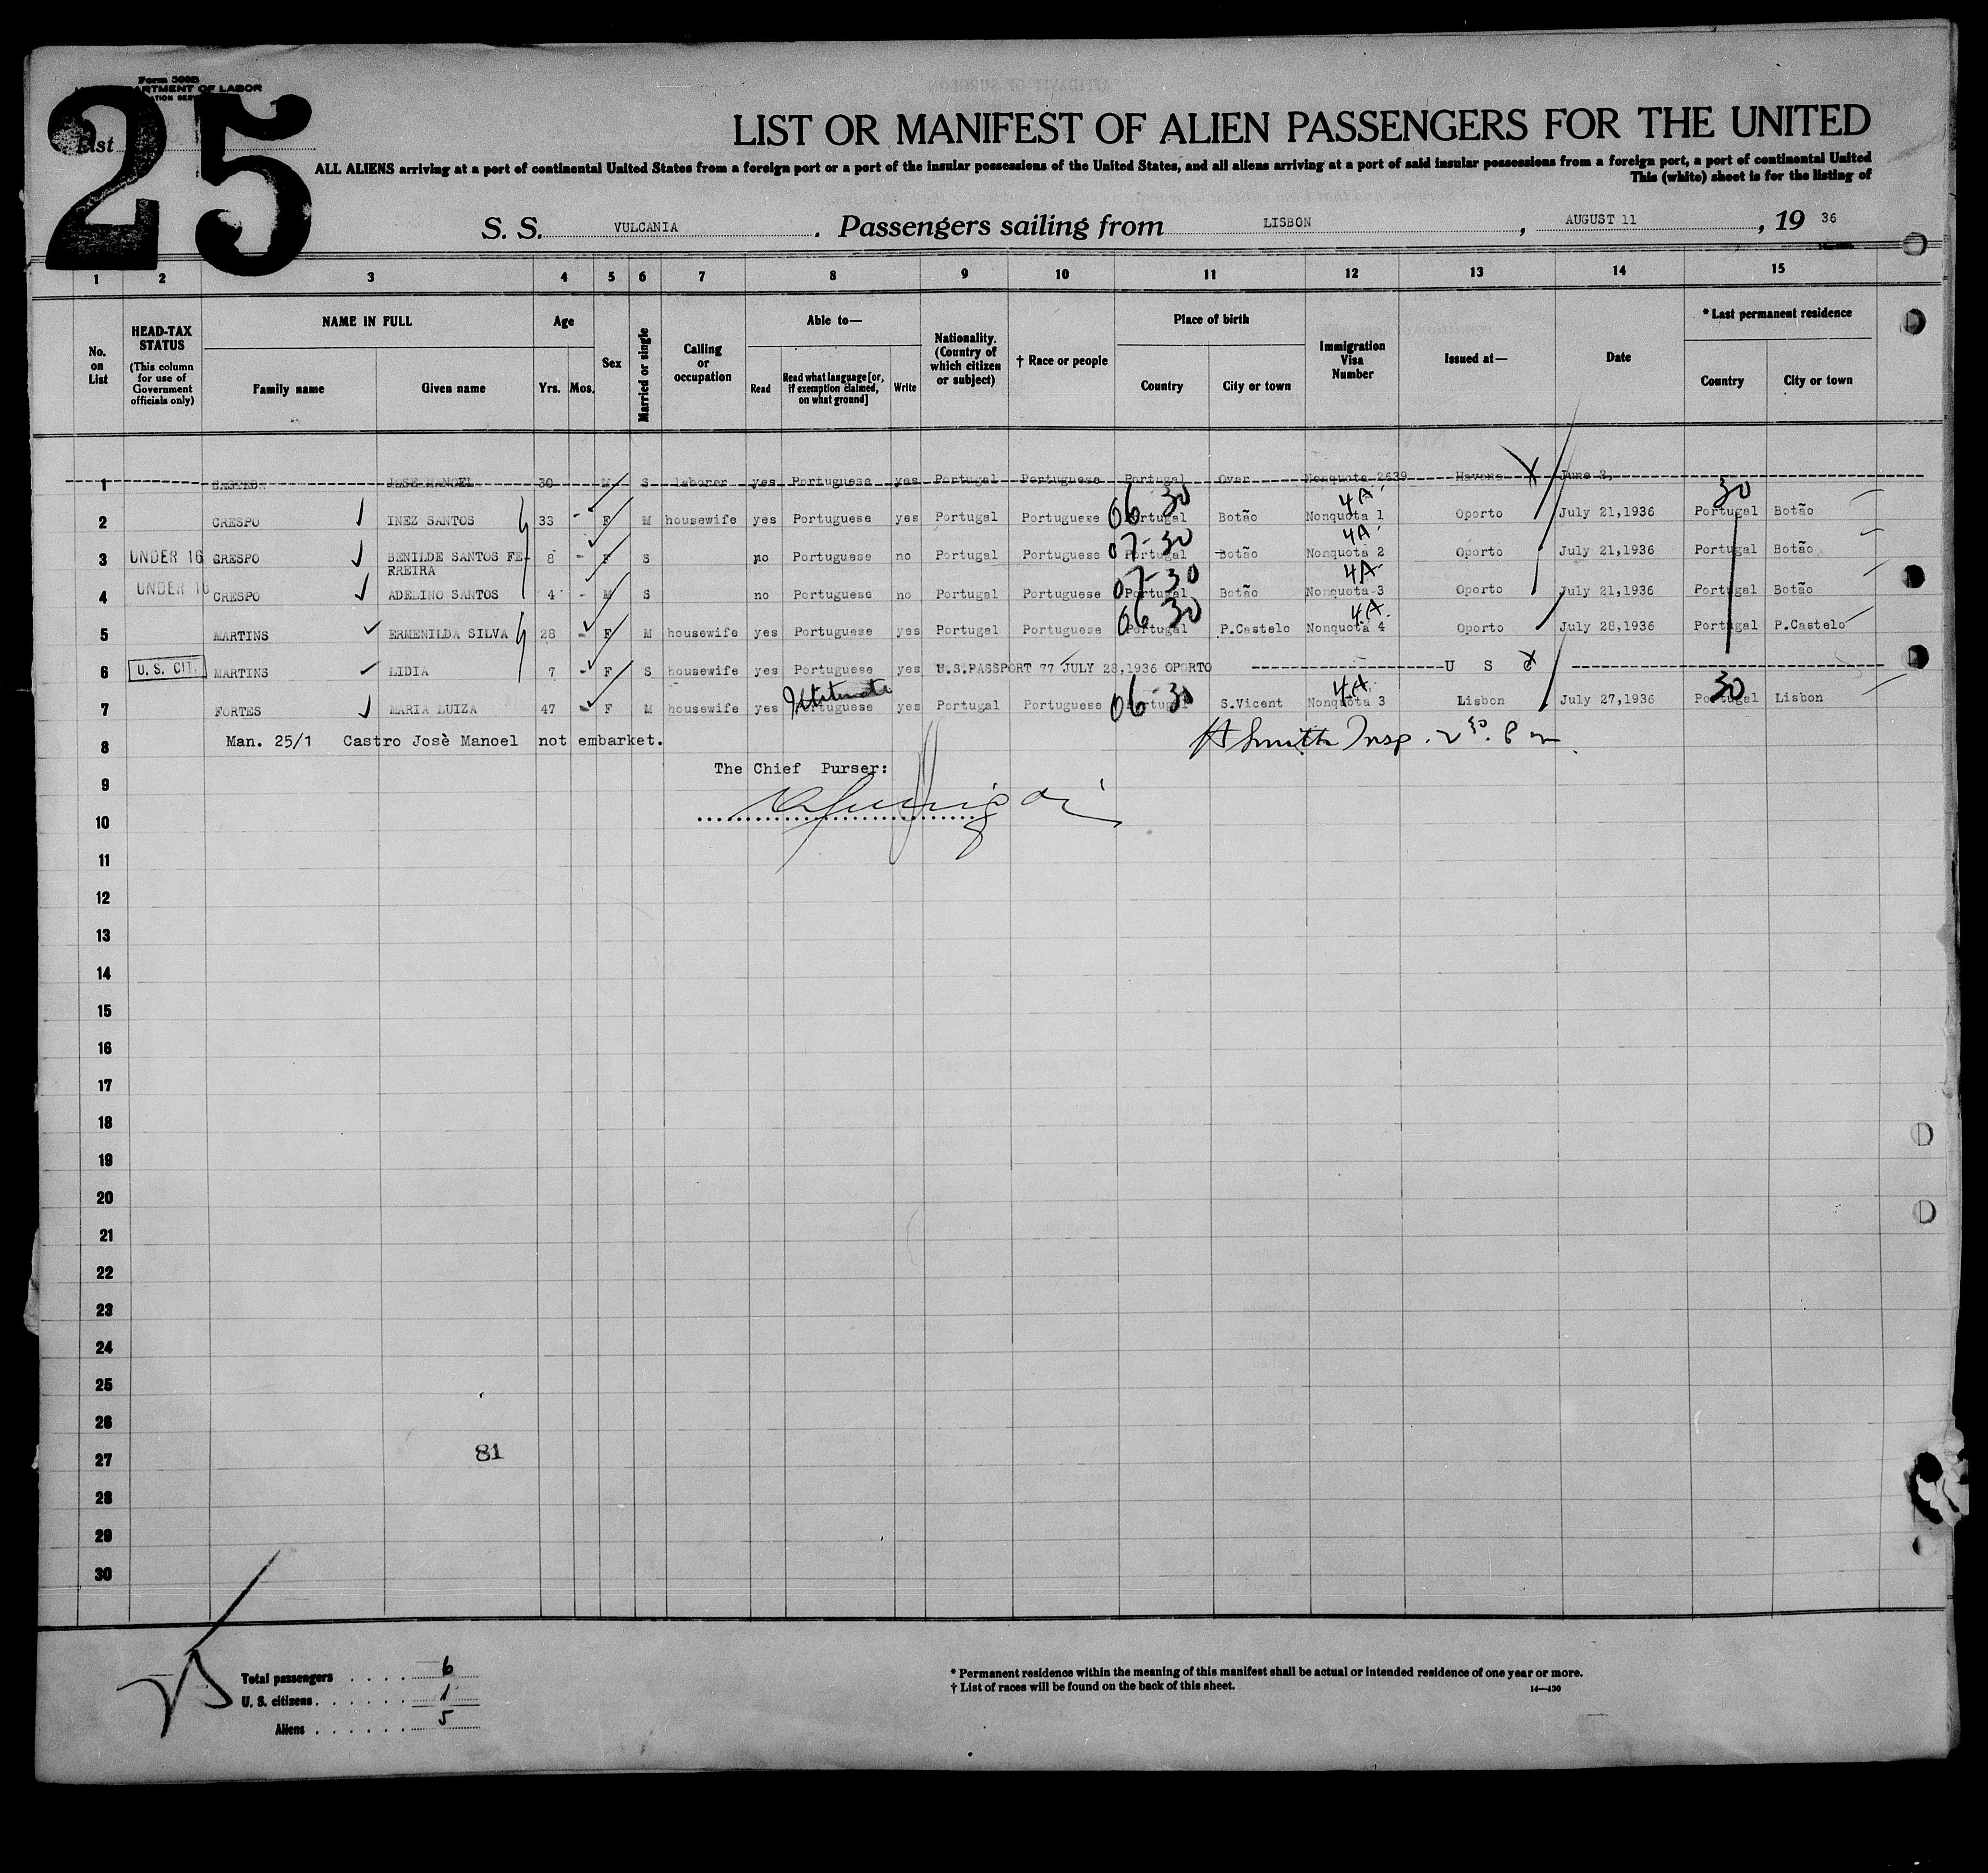 Form 500B
DEPARTMENT OF LABOR
25
List
LIST OR MANIFEST OF ALIEN PASSENGERS FOR THE UNITED
ALL ALIENS arriving at a port of continental United States from a foreign port or a port of the insular possessions of the United States, and all aliens arriving at a port of said insular possessions from a foreign port, a port of continental United
This (white) sheet is for the listing of
S. S. VULCANIA. Passengers sailing from LISBON, AUGUST 11, 19 36
1 2 3 4 5 6 7 8 9 10 11 12 13 14 15
No. on List
HEAD-TAX STATUS (This column for use of Government officials only)
NAME IN FULL
Family name
Given name
Age
Yrs. Mos.
Sex
Married or single
Calling or occupation
Able to—
Read
Read what language [or, if exemption claimed, on what ground]
Write
Nationality. (Country of which citizen or subject)
† Race or people
Place of birth
Country
City or town
Immigration Visa Number
Issued at—
Date
* Last permanent residence
Country
City or town
1 CASTRO JOSE MANOEL 30 M S laborer yes Portuguese yes Portugal Portuguese Portugal Ovar Nonquota 2639 Havana June 3,
2 CRESPO INEZ SANTOS 33 F M housewife yes Portuguese yes Portugal Portuguese 06-30 Portugal Botão 4A Nonquota 1 Oporto July 21,1936 30 Portugal Botão
3 UNDER 16 CRESPO BENILDE SANTOS FE-
RREIRA 8 - F S no Portuguese no Portugal Portuguese 07-30 Portugal Botão 4A Nonquota 2 Oporto July 21,1936 Portugal Botão
4 UNDER 16 CRESPO ADELINO SANTOS 4 - M S no Portuguese no Portugal Portuguese 07-30 Portugal Botão 4A Nonquota 3 Oporto July 21,1936 Portugal Botão
5 MARTINS ERMENILDA SILVA 28 - F M housewife yes Portuguese yes Portugal Portuguese 06 30 Portugal P.Castelo 4A Nonquota 4 Oporto July 28,1936 Portugal P.Castelo
6 U. S. CIT. MARTINS LIDIA 7 - F S housewife yes Portuguese yes U.S.PASSPORT 77 JULY 28,1936 OPORTO U S C
7 FORTES MARIA LUIZA 47 - F M housewife yes Portuguese yes Portugal Portuguese 06-30 Portugal S.Vicent 4A Nonquota 3 Lisbon July 27,1936 30 Portugal Lisbon
8 Man. 25/1 Castro Josè Manoel not embarket. H Smith Insp.
The Chief Purser:
9
10
11
12
13
14
15
16
17
18
19
20
21
22
23
24
25
26
27 81
28
29
30
Total passengers 6
U. S. citizens 1
Aliens 5
* Permanent residence within the meaning of this manifest shall be actual or intended residence of one year or more.
† List of races will be found on the back of this sheet. 14—430